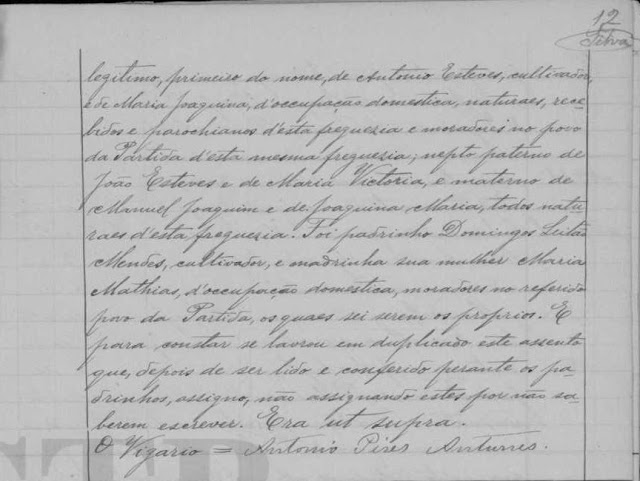 12
Silva
legitimo, primeiro do nome, de Antonio Esteves, cultivador,
e de Maria Joaquina, d'occupação domestica, naturaes, rece-
bidos e parochianos d'esta freguezia e moradores no povo
da Partida d'esta mesma freguezia; nepto paterno de
João Esteves e de Maria Victoria, e materno de
Manuel Joaquim e de Joaquina Maria, todos natu-
raes d'esta freguezia. Foi padrinho Domingos Leitão
Mendes, cultivador, e madrinha sua mulher Maria
Mathias, d'occupação domestica, moradores no referido
povo da Partida, os quaes sei serem os proprios. E
para constar se lavrou em duplicado este assento
que, depois de ser lido e conferido perante os pa-
drinhos, assigno, não assignando estes por não sa-
berem escrever. Era ut supra.
O Vigario = Antonio Pires Antunes.